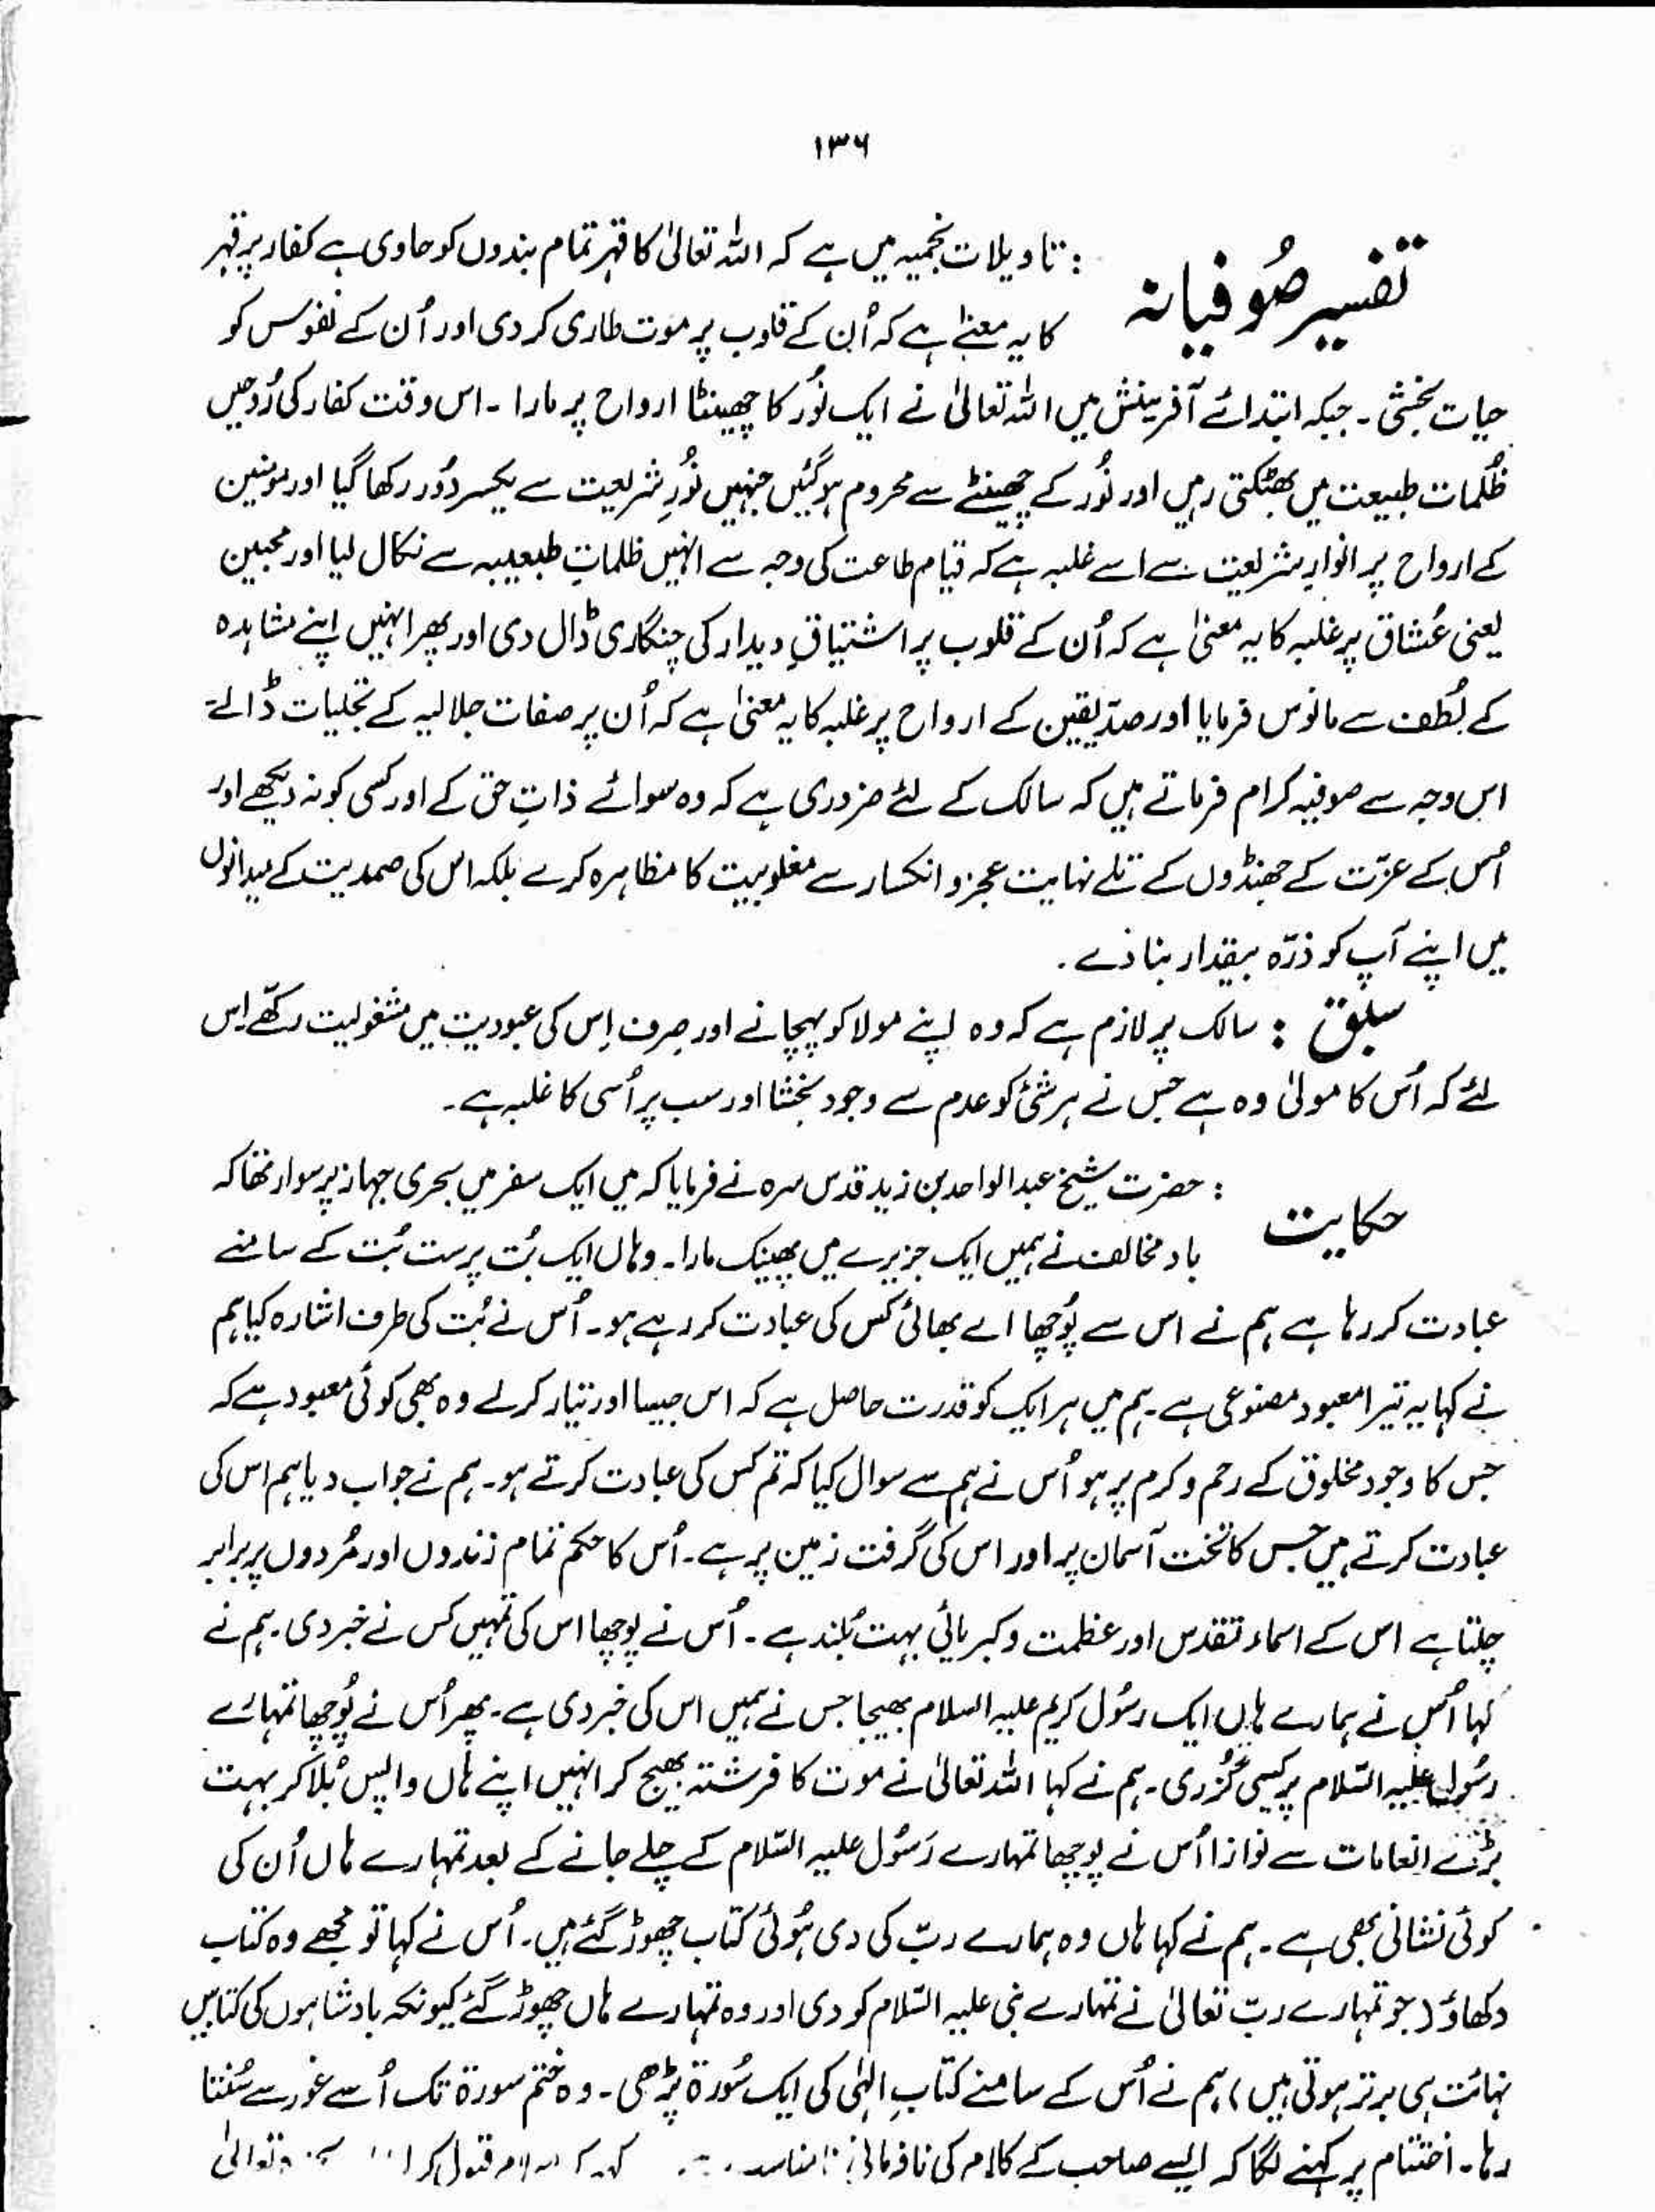 ۱۳۶
تفسیر صُوفیانہ : تاویلات نجمیہ میں ہے کہ اللہ تعالیٰ کا قہر تمام بندوں کو حاوی ہے کفار پر قہر
کا یہ معنےٰ ہے کہ اُن کے قلوب پر موت طاری کر دی اور اُن کے نفوس کو
حیات بخشی ۔ جبکہ ابتدائے آفرینش میں اللہ تعالیٰ نے ایک نُور کا چھینٹا ارواح پر مارا ۔ اس وقت کفار کی رُوحیں
ظُلمات طبیعت میں بھٹکتی رہیں اور نُور کے چھینٹے سے محروم ہو گئیں جنہیں نُورِ شریعت سے یکسر دُور رکھا گیا اور مومنین
کے ارواح پر انوارِ شریعت سے اسے غلبہ ہے کہ قیام طاعت کی وجہ سے انہیں ظلماتِ طبعیہ سے نکال لیا اور محبین
یعنی عُشاق پر غلبہ کا یہ معنیٰ ہے کہ اُن کے قلوب پر اشتیاقِ دیدار کی چنگاری ڈال دی اور پھر انہیں اپنے مشاہدہ
کے لُطف سے مانوس فرمایا اور صدّیقین کے ارواح پر غلبہ کا یہ معنیٰ ہے کہ اُن پر صفات جلالیہ کے تجلیات ڈالے
اس وجہ سے صوفیہ کرام فرماتے ہیں کہ سالک کے لئے ضروری ہے کہ وہ سوائے ذاتِ حق کے اور کسی کو نہ دیکھے اور
اُس کے عزّت کے جھنڈوں کے تلے نہایت عجز و انکسار سے مغلوبیت کا مظاہرہ کرے بلکہ اس کی صمدیت کے میدانوں
میں اپنے آپ کو ذرّہ بیقدار بنا دے ۔
سبق : سالک پر لازم ہے کہ وہ اپنے مولا کو پہچانے اور صِرف اِس کی عبودیت میں مشغولیت رکھّے اس
لئے کہ اُس کا مولیٰ وہ ہے جس نے ہر شئ کو عدم سے وجود بخشا اور سب پر اُسی کا غلبہ ہے ۔
حکایت : حضرت شیخ عبدالواحد بن زید قدس سرہ نے فرمایا کہ میں ایک سفر میں بحری جہاز پر سوار تھا کہ
باد مخالف نے ہمیں ایک جزیرے میں پھینک مارا ۔ وہاں ایک بُت پرست بُت کے سامنے
عبادت کر رہا ہے ہم نے اس سے پُوچھا اے بھائی کس کی عبادت کر رہے ہو ۔ اُس نے بُت کی طرف اشارہ کیا ہم
نے کہا یہ تیرا معبود مصنوعی ہے ۔ ہم میں ہر ایک کو قدرت حاصل ہے کہ اس جیسا اور تیار کر لے وہ بھی کوئی معبود ہے کہ
جس کا وجود مخلوق کے رحم و کرم پر ہو اُس نے ہم سے سوال کیا کہ تم کس کی عبادت کرتے ہو ۔ ہم نے جواب دیا ہم اس کی
عبادت کرتے ہیں جس کا تخت آسمان پر اور اس کی گرفت زمین پر ہے ۔ اُس کا حکم تمام زندوں اور مُردوں پر برابر
چلتا ہے اس کے اسماء تقدس اور عظمت و کبریائی بہت بُلند ہے ۔ اُس نے پوچھا اس کی تمہیں کس نے خبر دی ۔ ہم نے
کہا اُس نے ہمارے ہاں ایک رسُول کریم علیہ السلام بھیجا جس نے ہمیں اس کی خبر دی ہے ۔ پھر اُس نے پُوچھا تمہارے
رسُول علیہ السّلام پر کیسی گزری ۔ ہم نے کہا اللہ تعالیٰ نے موت کا فرشتہ بھیج کر انہیں اپنے ہاں واپس بُلا کر بہت
بڑے انعامات سے نوازا اُس نے پوچھا تمہارے رَسُول علیہ السّلام کے چلے جانے کے بعد تمہارے ہاں اُن کی
کوئی نشانی بھی ہے ۔ ہم نے کہا ہاں وہ ہمارے ربّ کی دی ہُوئی کتاب چھوڑ گئے ہیں ۔ اُس نے کہا تو مجھے وہ کتاب
دکھاؤ (جو تمہارے ربّ تعالیٰ نے تمہارے نبی علیہ السّلام کو دی اور وہ تمہارے ہاں چھوڑ گئے کیونکہ بادشاہوں کی کتابیں
نہائت ہی برتر ہوتی ہیں) ہم نے اُس کے سامنے کتابِ الہٰی کی ایک سُورۃ پڑھی ۔ وہ ختم سورۃ تک اُسے غور سے سُنتا
رہا ۔ اختتام پر کہنے لگا کہ ایسے صاحب کے کلام کی نافرمانی کہہ کر قبول کر تعالیٰ